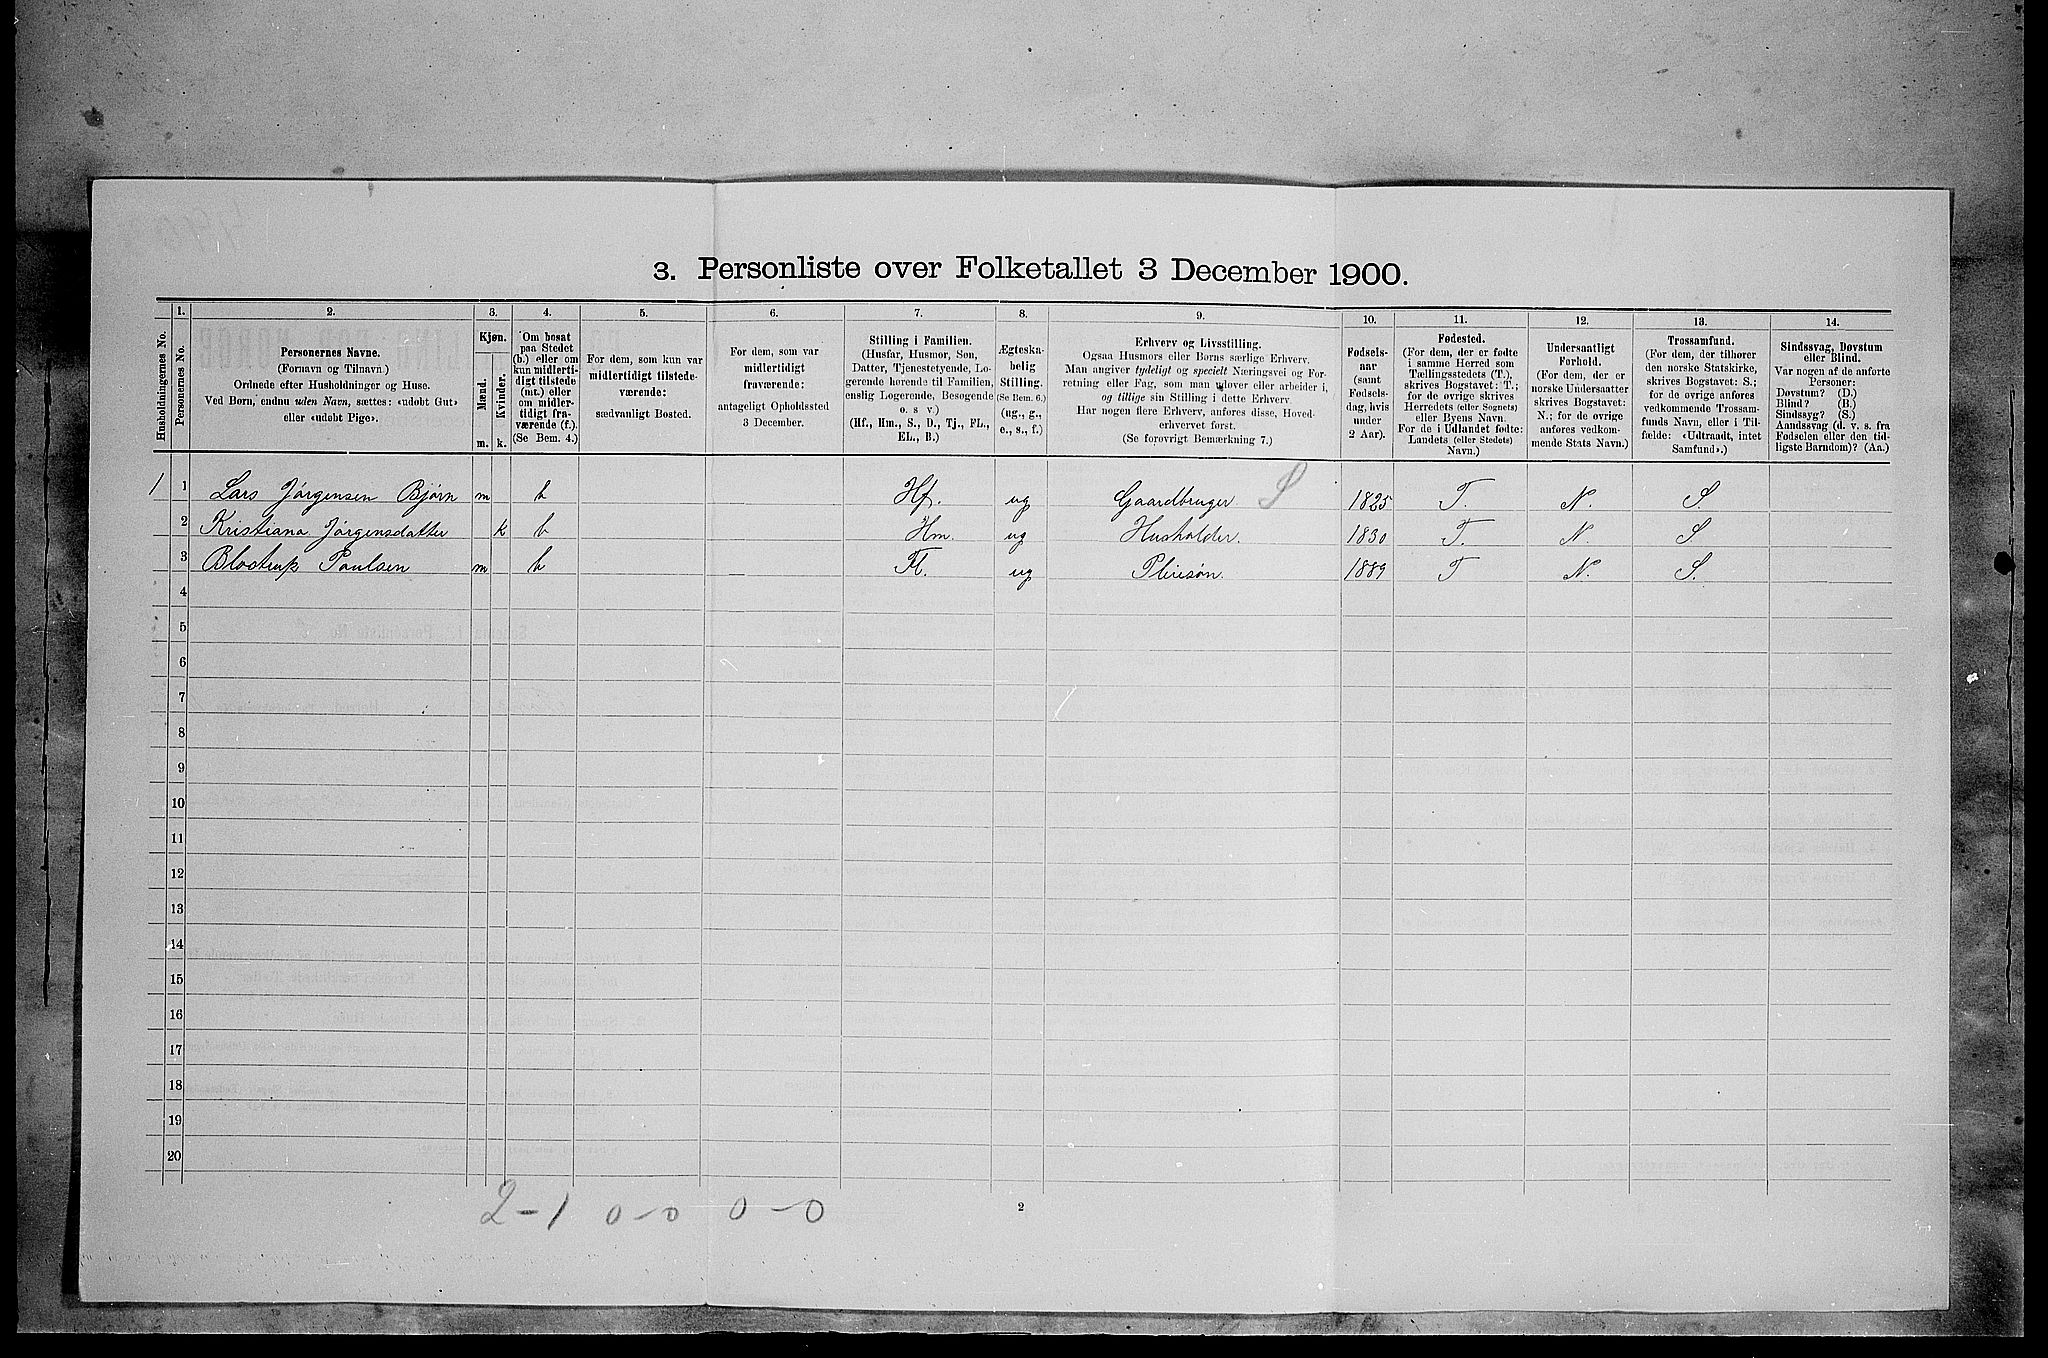 3. Personliste over Folketallet 3 December 1900.
Husholdningernes No.
1.
Personernes No.
2.
Personernes Navne.
(Fornavn og Tilnavn.)
Ordnede efter Husholdninger og Huse.
Ved Børn, endnu uden Navn, sættes: «udøbt Gut»
eller «udøbt Pige».
3.
Kjøn.
Mænd.
Kvinder.
m.
k.
4.
Om bosat
paa Stedet
(b.) eller om
kun midlerti-
digt tilstede
(mt.) eller
om midler-
tidigt fra-
værende (f.).
(Se Bem. 4.)
5.
For dem, som kun var
midlertidigt tilstede-
værende:
sædvanligt Bosted.
6.
For dem, som var
midlertidigt
fraværende:
antageligt Opholdssted
3 December.
7.
Stilling i Familien.
(Husfar, Husmor, Søn,
Datter, Tjenestetyende, Lo-
gerende hørende til Familien,
enslig Logerende, Besøgende
o. s v.)
(Hf., Hm., S., D., Tj., FL.,
EL., B.)
8.
Ægteska-
belig
Stilling.
(Se Bem. 6.)
(ug., g.,
e., s., f.)
9.
Erhverv og Livsstilling.
Ogsaa Husmors eller Børns særlige Erhverv.
Man angiver tydeligt og specielt Næringsvei og For-
retning eller Fag, som man udøver eller arbeider i,
og tillige sin Stilling i dette Erhverv.
Har nogen flere Erhverv, anføres disse, Hoved-
erhvervet først.
(Se forøvrigt Bemærkning 7.)
10.
Fødsels-
aar
(samt
Fødsels-
dag, hvis
under
2 Aar).
11.
Fødested.
(For dem, der er fødte
i samme Herred som
Tællingsstedets (T.),
skrives Bogstavet: T.;
for de øvrige skrives
Herredets (eller Sognets)
eller Byens Navn.
For de i Udlandet fødte:
Landets (eller Stedets)
Navn.)
12.
Undersaatligt
Forhold.
(For dem, der er
norske Undersaatter
skrives Bogstavet:
N.; for de øvrige
anføres vedkom-
mende Stats Navn.)
13.
Trossamfund.
(For dem, der tilhører
den norske Statskirke,
skrives Bogstavet: S.;
for de øvrige anføres
vedkommende Trossam-
funds Navn, eller i Til-
fælde: «Udtraadt, intet
Samfund».)
14.
Sindssvag, Døvstum
eller Blind.
Var nogen af de anførte
Personer:
Døvstum? (D.)
Blind? (B.)
Sindssyg? (S.)
Aandssvag (d. v. s. fra
Fødselen eller den tid-
ligste Barndom)? (Aa.)
1 1 Lars Jørgensen Bjørn m b Hf. ug Gaardbruger. S 1825 T. N. S.
2 Kristiana Jørgensdatter k b Hm. ug Husholder. 1830 T. N. S.
3 Paulsen m b Fl. ug Pleiesøn. 1889 T N. S.
4
5
6
7
8
9
10
11
12
13
14
15
16
17
18
19
20
2-1 0-0 0-0
2